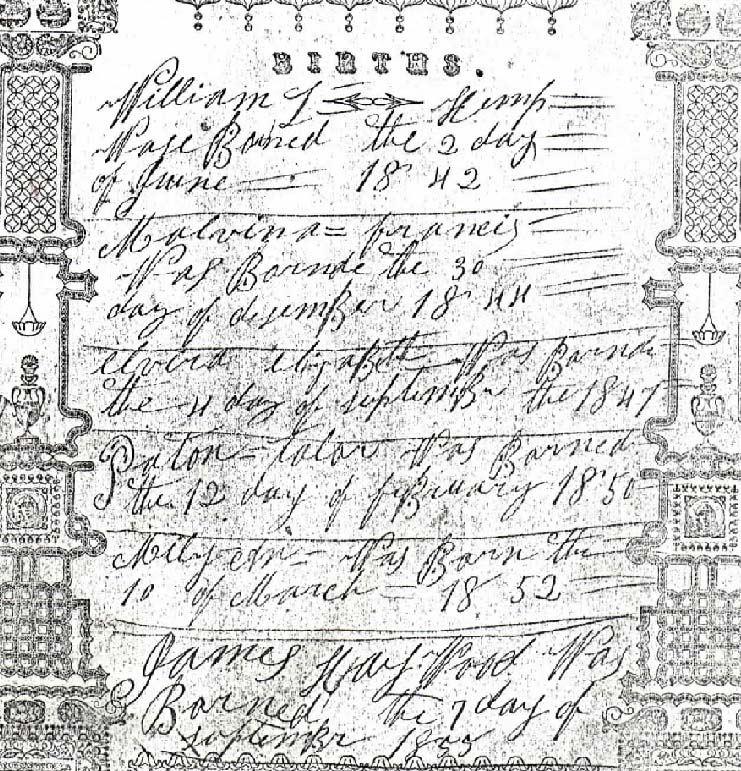 BIRTHS.
William L Hemp
Wase Borned the 2 day
of Juine 18 42
Malvina = francis
Was Barnde the 30
day of desember 18 44
elizabeth Was Barnde
the 4 day of september the 1847
Paton = talor Was Barned
the 12 day of february 1850
Was Born the
10 of March = 18 52
James Wood Was
Barned the 7 day of
september